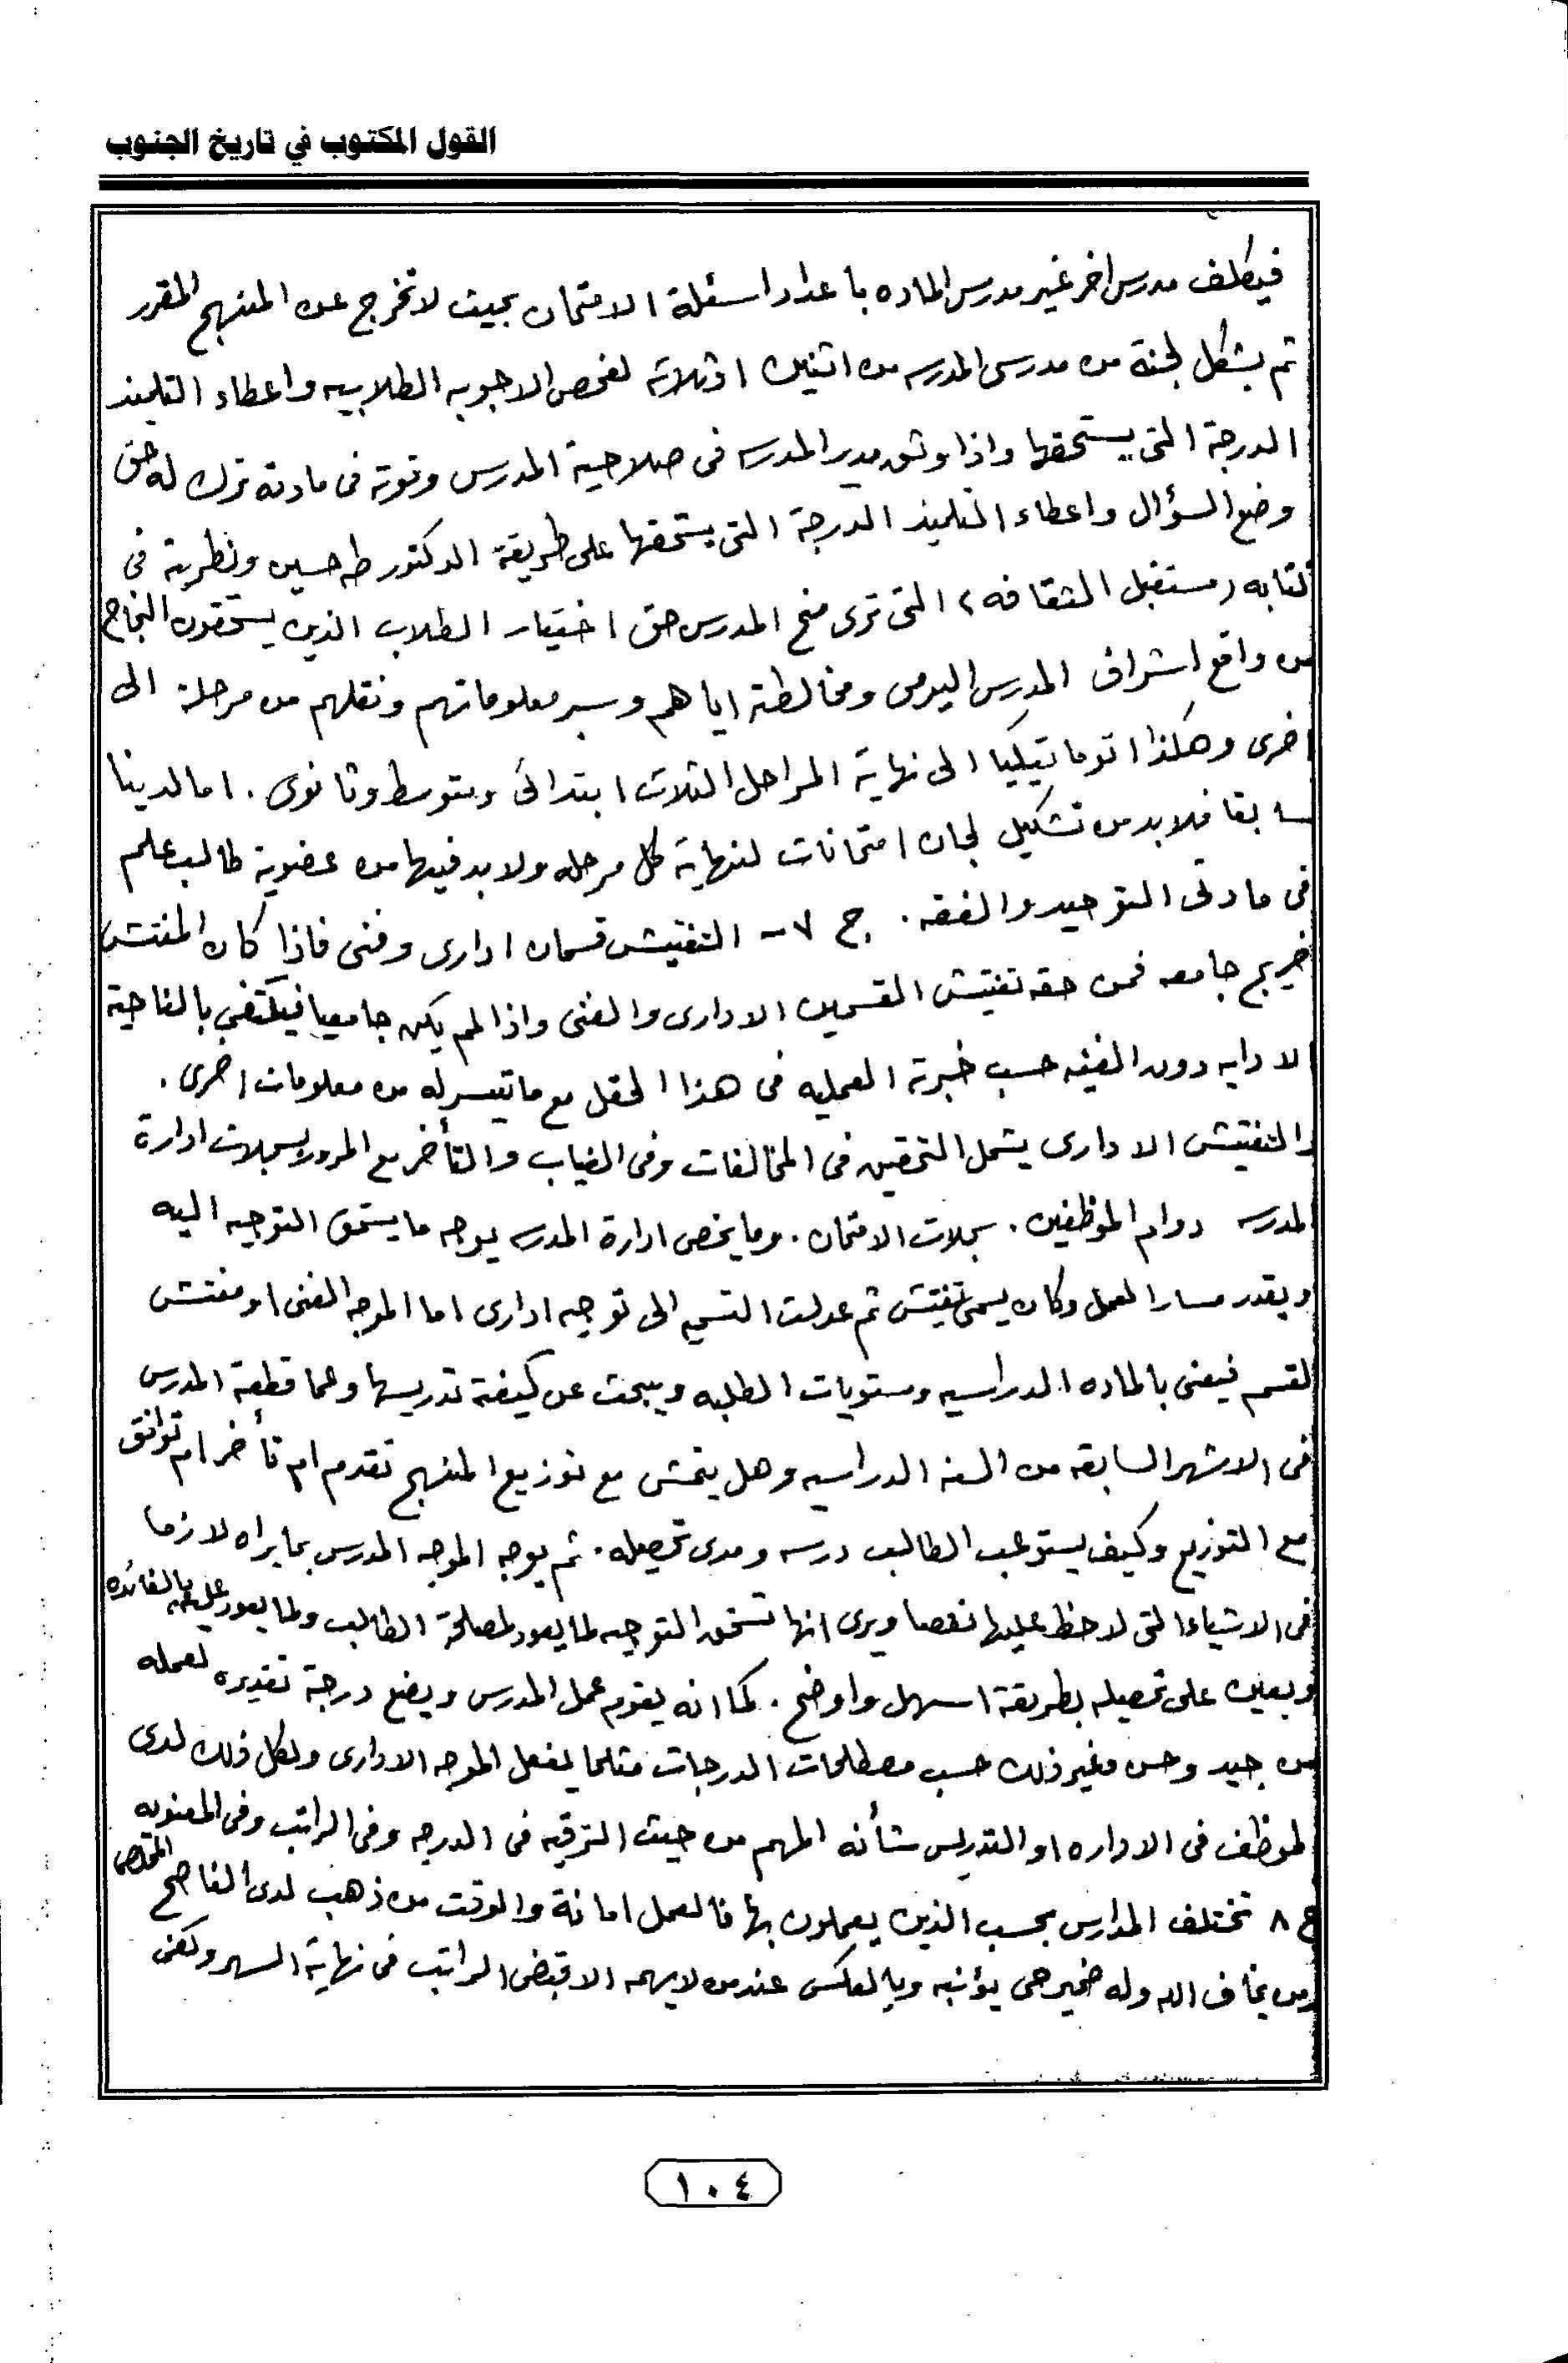 القول المكتوب في تاريخ الجنوب
فيكلف مدرس اخر غير مدرس الماده باعداد اسئلة الامتحان بحيث لا تخرج عن المنهج المقرر
ثم يشكل لجنة من مدرسى المدرسه من اثنين او ثلاثة لفحص الاجوبه الطلابيه واعطاء التلميذ
الدرجة التى يستحقها واذا وثق مدير المدرسه فى صلاحية المدرس وقوته فى مادته ترك له حق
وضع السؤال واعطاء التلميذ الدرجة التى يستحقها على طريقة الدكتور طه حسين ونظريته فى
كتابه (مستقبل الثقافه) التى ترى منح المدرس حق اختيار الطلاب الذين يستحقون النجاح
من واقع اشراف المدرس اليومى ومخالطته اياهم وسبر معلوماتهم ونقلهم من مرحلة الى
اخرى وهكذا اتوماتيكيا الى نهاية المراحل الثلاث ابتدائى ومتوسط وثانوى . اما لدينا
سابقا فلابد من تشكيل لجان امتحانات لنهاية كل مرحله ولابد فيها من عضوية طالب علم
فى مادتى التوحيد والفقه . ج ٧ - التفتيش قسمان ادارى وفنى فاذا كان المفتش
خريج جامعه فمن حقه تفتيش القسمين الادارى والفنى واذا لم يكن جامعيا فيكتفي بالناحية
الادايه دون الفنيه حسب خبرته العمليه فى هذا الحقل مع ما تيسر له من معلومات اخرى .
والتفتيش الادارى يشمل التحقيق فى المخالفات وفى الغياب والتأخر مع المرور بسجلات ادارة
المدرسه دوام الموظفين . سجلات الامتحان . وما يخص ادارة المدرسه يوجه ما يستحق التوجيه اليه
ويقدر مسار العمل وكان يسمى تفتيش ثم عدلت التسميه الى توجيه ادارى اما الموجه الفنى او مفتش
القسم فيعنى بالماده الدراسيه ومستويات الطلبه ويبحث عن كيفية تدريسها وعما قطعه المدرس
فى الاشهر السابقه من السنه الدراسيه وهل يتمشى مع توزيع المنهج تقدم ام تأخر ام توافق
مع التوزيع وكيف يستوعب الطالب درسه ومدى تحصيله . ثم يوجه الموجه المدرس بما يراه لازما
فى الاشياء التى لاحظ عليها نقصا ويرى انها تستحق التوجيه لما يعود لمصلحة الطالب ولما يعود عليه بالفائده
ويعين على تحصيله بطريقة اسهل واوضح . كما انه يقوم عمل المدرس ويضع درجة تقديره لعمله
من جيد وحسن وغير ذلك حسب مصطلحات الدرجات مثلما يفعل الموجه الادارى ولكل ذلك لدى
الموظف فى الاداره او التدريس شأنه المهم من حيث الترقيه فى الدرجه وفى الراتب وفى المعنويه
ج ٨ تختلف المدارس بحسب الذين يعملون بها فالعمل امانة والوقت من ذهب لدى الناصح المخلص
ومن يخاف الله وله ضمير حى يؤنبه وبالعكس عند من لا يهمه الا قبض الراتب فى نهاية الشهر وكفى
١٠٤